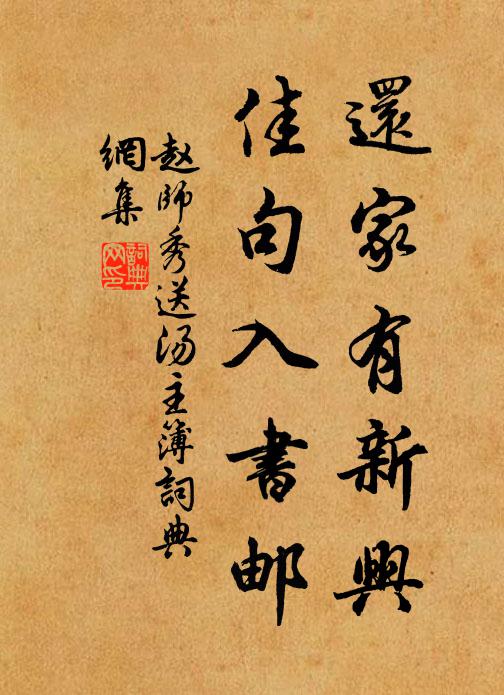 還家有新興
佳句入書邮
赵師秀送汤主簿詞典
網集
詞典
网印